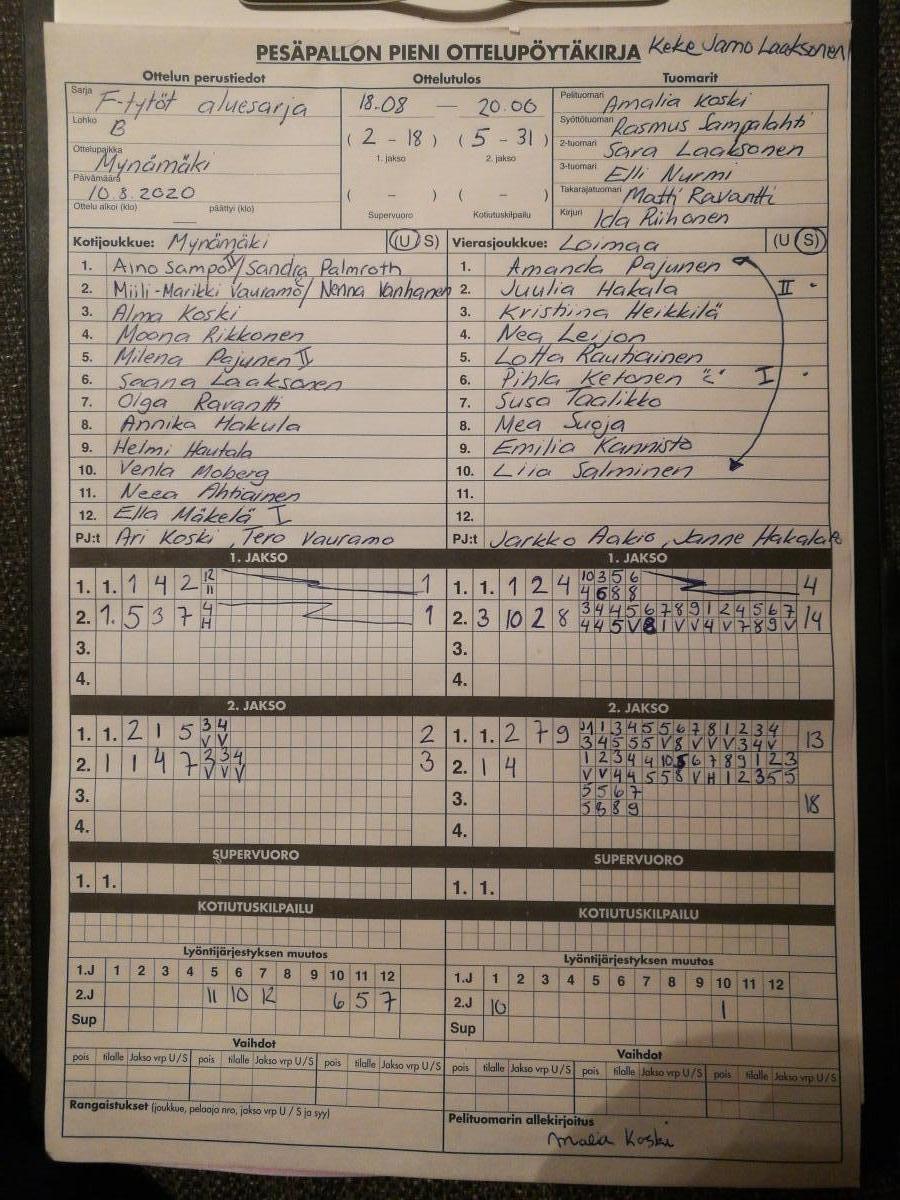 PESÄPALLON PIENI OTTELUPÖYTÄKIRJA Keke Jarno Laaksonen
Ottelun perustiedot Ottelutulos Tuomarit
Sarja F-tytöt aluesarja
Lohko B
Ottelupaikka Mynämäki
Päivämäärä 10.8.2020
Ottelu alkoi (klo) päättyi (klo)
18.08 — 20.06
( 2 - 18 ) ( 5 - 31 )
1. jakso 2. jakso
( - ) ( - )
Supervuoro Kotiutuskilpailu
Pelituomari Amalia Koski
Syöttötuomari Rasmus Sampalahti
2-tuomari Sara Laaksonen
3-tuomari Elli Nurmi
Takarajatuomari Matti Ravantti
Kirjuri Ida Riihonen
Kotijoukkue: Mynämäki (U S)
1. Aino Sampo / Sandra Palmroth
2. Miili-Marikki Vauramo / Nenna Vanhanen
3. Alma Koski
4. Moona Rikkonen
5. Milena Pajunen II
6. Saana Laaksonen
7. Olga Ravantti
8. Annika Hakula
9. Helmi Hautala
10. Venla Moberg
11. Neea Ahtiainen
12. Ella Mäkelä I
PJ:t Ari Koski, Tero Vauramo
Vierasjoukkue: Loimaa (U S)
1. Amanda Pajunen
2. Juulia Hakala II
3. Kristiina Heikkilä
4. Nea Leijon
5. Lotta Rauhainen
6. Pihla Ketonen "c" I
7. Susa Taalikko
8. Mea Suoja
9. Emilia Kannisto
10. Liia Salminen
11.
12.
PJ:t Jarkko Aakio, Janne Hakala
1. JAKSO
1. 1. 1 4 2 12 1
11
2. 1. 5 3 7 4 1
H
3.
4.
1. JAKSO
1. 1. 1 2 4 10 3 5 6 4
4 6 8 8
2. 3 10 2 8 3 4 4 5 6 7 8 9 1 2 4 5 6 7 14
4 4 5 V 8 1 V V 4 V 7 8 9 V
3.
4.
2. JAKSO
1. 1. 2 1 5 3 4 2
V V
2. 1 1 4 7 3 3 4 3
V V V
3.
4.
2. JAKSO
1. 1. 2 7 9 1 1 3 4 5 5 6 7 8 1 2 3 4 13
3 4 5 5 5 V 8 V V V 3 4 V
2. 1 4 1 2 3 4 4 10 5 6 7 8 9 1 2 3
V V 4 4 5 5 8 V H 1 2 3 5 5
3. 5 5 6 7 18
5 8 8 9
4.
SUPERVUORO
1. 1.
SUPERVUORO
1. 1.
KOTIUTUSKILPAILU
KOTIUTUSKILPAILU
Lyöntijärjestyksen muutos
1.J 1 2 3 4 5 6 7 8 9 10 11 12
2.J 11 10 12 6 5 7
Sup
Lyöntijärjestyksen muutos
1.J 1 2 3 4 5 6 7 8 9 10 11 12
2.J 10 1
Sup
Vaihdot
pois tilalle Jakso vrp U/S pois tilalle Jakso vrp U/S pois tilalle Jakso vrp U/S
Vaihdot
pois tilalle Jakso vrp U/S pois tilalle Jakso vrp U/S pois tilalle Jakso vrp U/S
Rangaistukset (joukkue, pelaaja nro, jakso vrp U / S ja syy)
Pelituomarin allekirjoitus
Amalia Koski